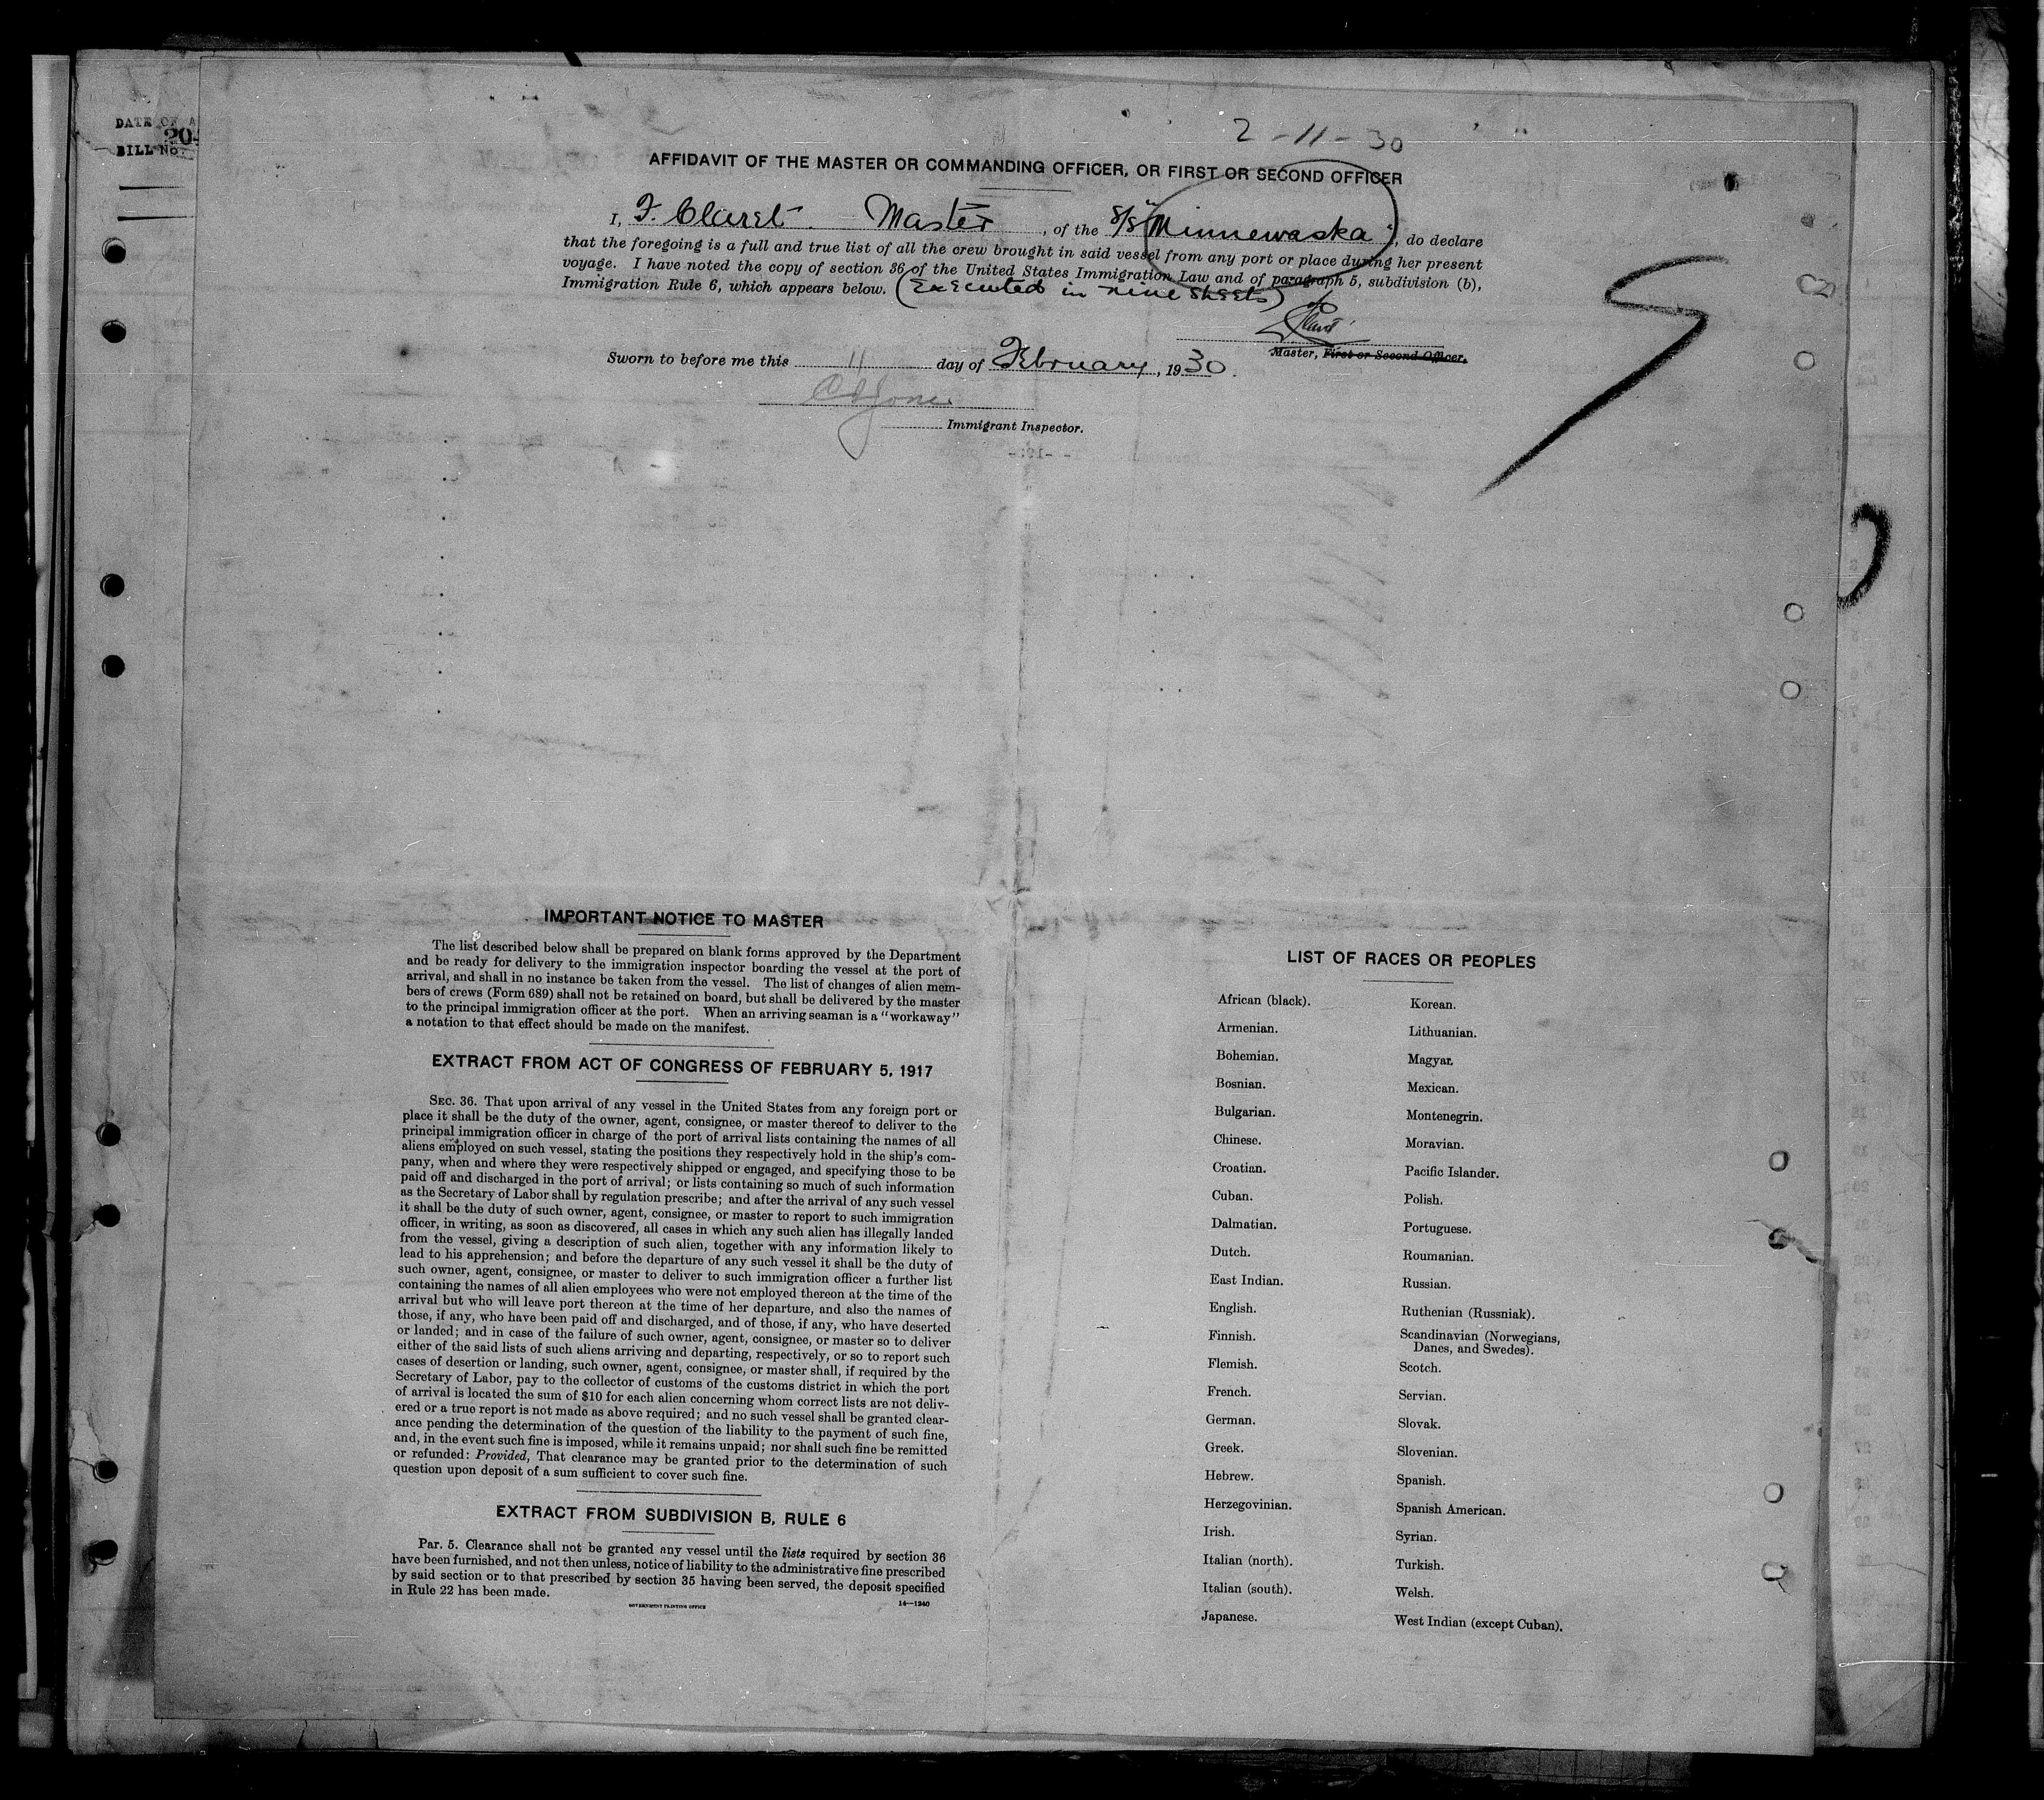 DATE OF A
20
BILL No.
2-11-30
AFFIDAVIT OF THE MASTER OR COMMANDING OFFICER, OR FIRST OR SECOND OFFICER
I, F. Claret. Master, of the S/S "Minnewaska", do declare
that the foregoing is a full and true list of all the crew brought in said vessel from any port or place during her present
voyage. I have noted the copy of section 36 of the United States Immigration Law and of paragraph 5, subdivision (b),
Immigration Rule 6, which appears below. (Executed in nine sheets)
Claret
Master, First or Second Officer.
Sworn to before me this 11 day of February, 1930.
Jones
Immigrant Inspector.
IMPORTANT NOTICE TO MASTER
The list described below shall be prepared on blank forms approved by the Department
and be ready for delivery to the immigration inspector boarding the vessel at the port of
arrival, and shall in no instance be taken from the vessel. The list of changes of alien mem-
bers of crews (Form 689) shall not be retained on board, but shall be delivered by the master
to the principal immigration officer at the port. When an arriving seaman is a "workaway"
a notation to that effect should be made on the manifest.
EXTRACT FROM ACT OF CONGRESS OF FEBRUARY 5, 1917
SEC. 36. That upon arrival of any vessel in the United States from any foreign port or
place it shall be the duty of the owner, agent, consignee, or master thereof to deliver to the
principal immigration officer in charge of the port of arrival lists containing the names of all
aliens employed on such vessel, stating the positions they respectively hold in the ship's com-
pany, when and where they were respectively shipped or engaged, and specifying those to be
paid off and discharged in the port of arrival; or lists containing so much of such information
as the Secretary of Labor shall by regulation prescribe; and after the arrival of any such vessel
it shall be the duty of such owner, agent, consignee, or master to report to such immigration
officer, in writing, as soon as discovered, all cases in which any such alien has illegally landed
from the vessel, giving a description of such alien, together with any information likely to
lead to his apprehension; and before the departure of any such vessel it shall be the duty of
such owner, agent, consignee, or master to deliver to such immigration officer a further list
containing the names of all alien employees who were not employed thereon at the time of the
arrival but who will leave port thereon at the time of her departure, and also the names of
those, if any, who have been paid off and discharged, and of those, if any, who have deserted
or landed; and in case of the failure of such owner, agent, consignee, or master so to deliver
either of the said lists of such aliens arriving and departing, respectively, or so to report such
cases of desertion or landing, such owner, agent, consignee, or master shall, if required by the
Secretary of Labor, pay to the collector of customs of the customs district in which the port
of arrival is located the sum of $10 for each alien concerning whom correct lists are not deliv-
ered or a true report is not made as above required; and no such vessel shall be granted clear-
ance pending the determination of the question of the liability to the payment of such fine,
and, in the event such fine is imposed, while it remains unpaid; nor shall such fine be remitted
or refunded: Provided, That clearance may be granted prior to the determination of such
question upon deposit of a sum sufficient to cover such fine.
EXTRACT FROM SUBDIVISION B, RULE 6
Par. 5. Clearance shall not be granted any vessel until the lists required by section 36
have been furnished, and not then unless, notice of liability to the administrative fine prescribed
by said section or to that prescribed by section 35 having been served, the deposit specified
in Rule 22 has been made.
GOVERNMENT PRINTING OFFICE 14—1240
LIST OF RACES OR PEOPLES
African (black).
Armenian.
Bohemian.
Bosnian.
Bulgarian.
Chinese.
Croatian.
Cuban.
Dalmatian.
Dutch.
East Indian.
English.
Finnish.
Flemish.
French.
German.
Greek.
Hebrew.
Herzegovinian.
Irish.
Italian (north).
Italian (south).
Japanese.
Korean.
Lithuanian.
Magyar.
Mexican.
Montenegrin.
Moravian.
Pacific Islander.
Polish.
Portuguese.
Roumanian.
Russian.
Ruthenian (Russniak).
Scandinavian (Norwegians,
Danes, and Swedes).
Scotch.
Servian.
Slovak.
Slovenian.
Spanish.
Spanish American.
Syrian.
Turkish.
Welsh.
West Indian (except Cuban).